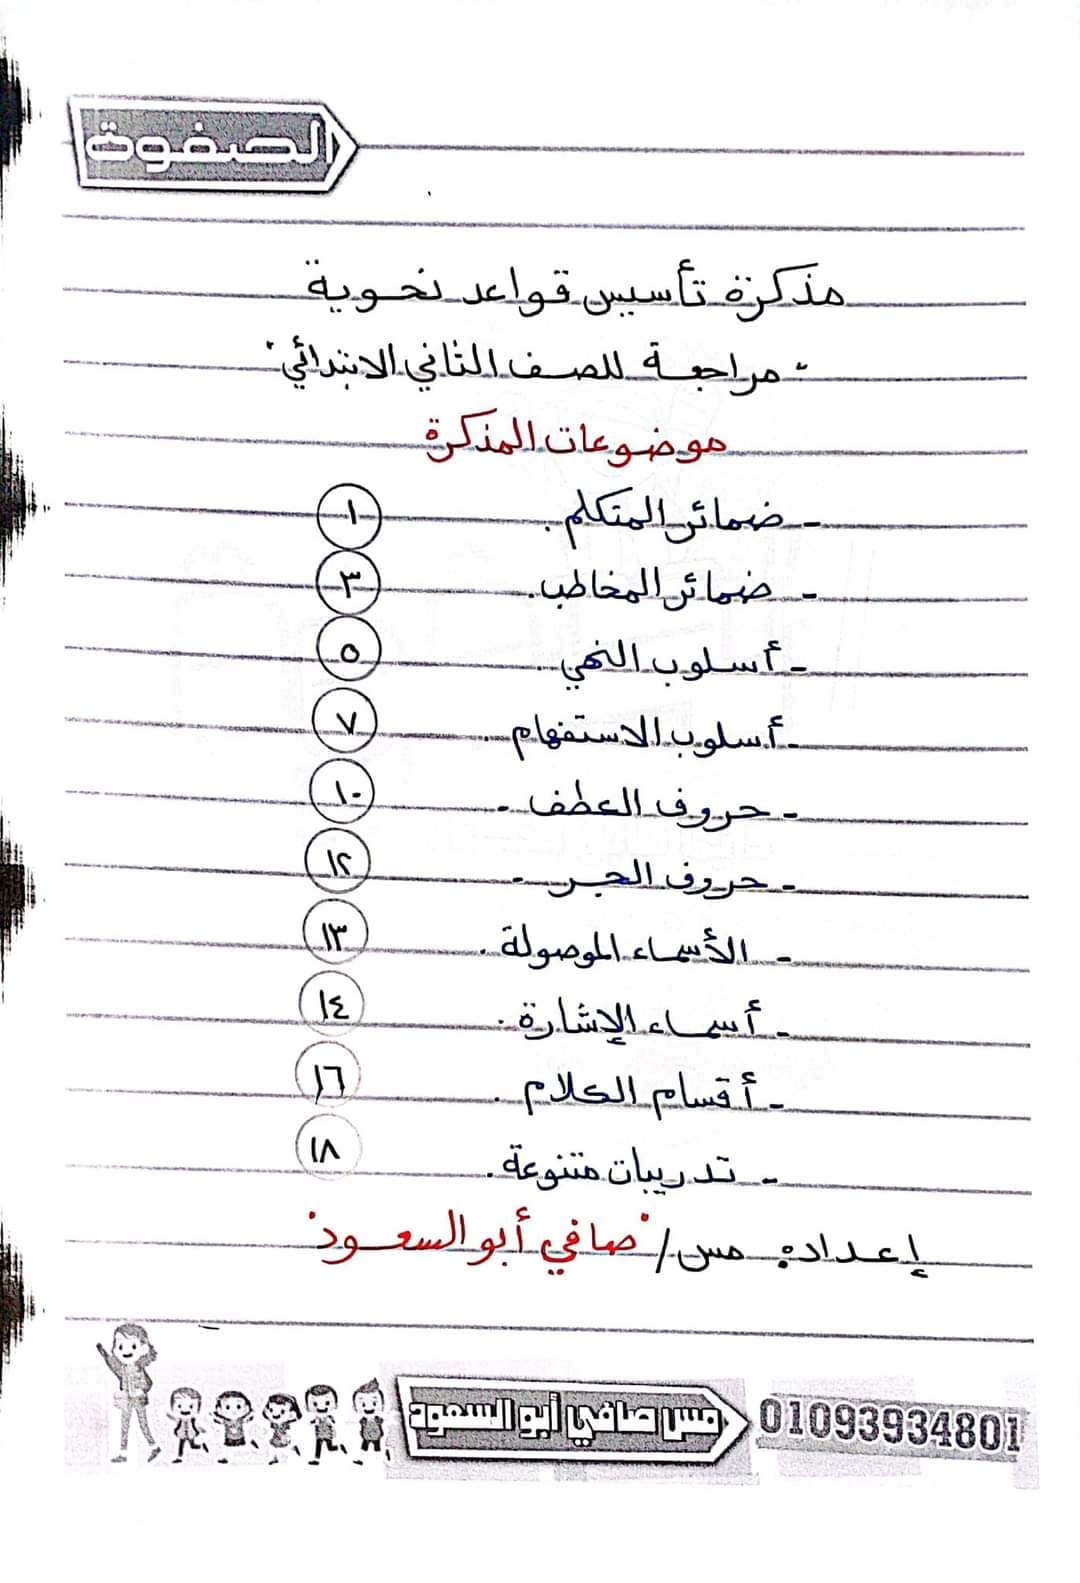 الصفوة
مذكرة تأسيس قواعد نحوية
"مراجعة للصف الثاني الابتدائي"
موضوعات المذكرة
- ضمائر المتكلم. ١
- ضمائر المخاطب. ٣
- أسلوب النهي. ٥
- أسلوب الاستفهام. ٧
- حروف العطف. ١٠
- حروف الجر. ١٢
- الأسماء الموصولة. ١٣
- أسماء الإشارة. ١٤
- أقسام الكلام. ١٦
- تدريبات متنوعة. ١٨
إعداد: مس/ "صافي أبو السعود"
01093934801 مس صافي أبو السعود